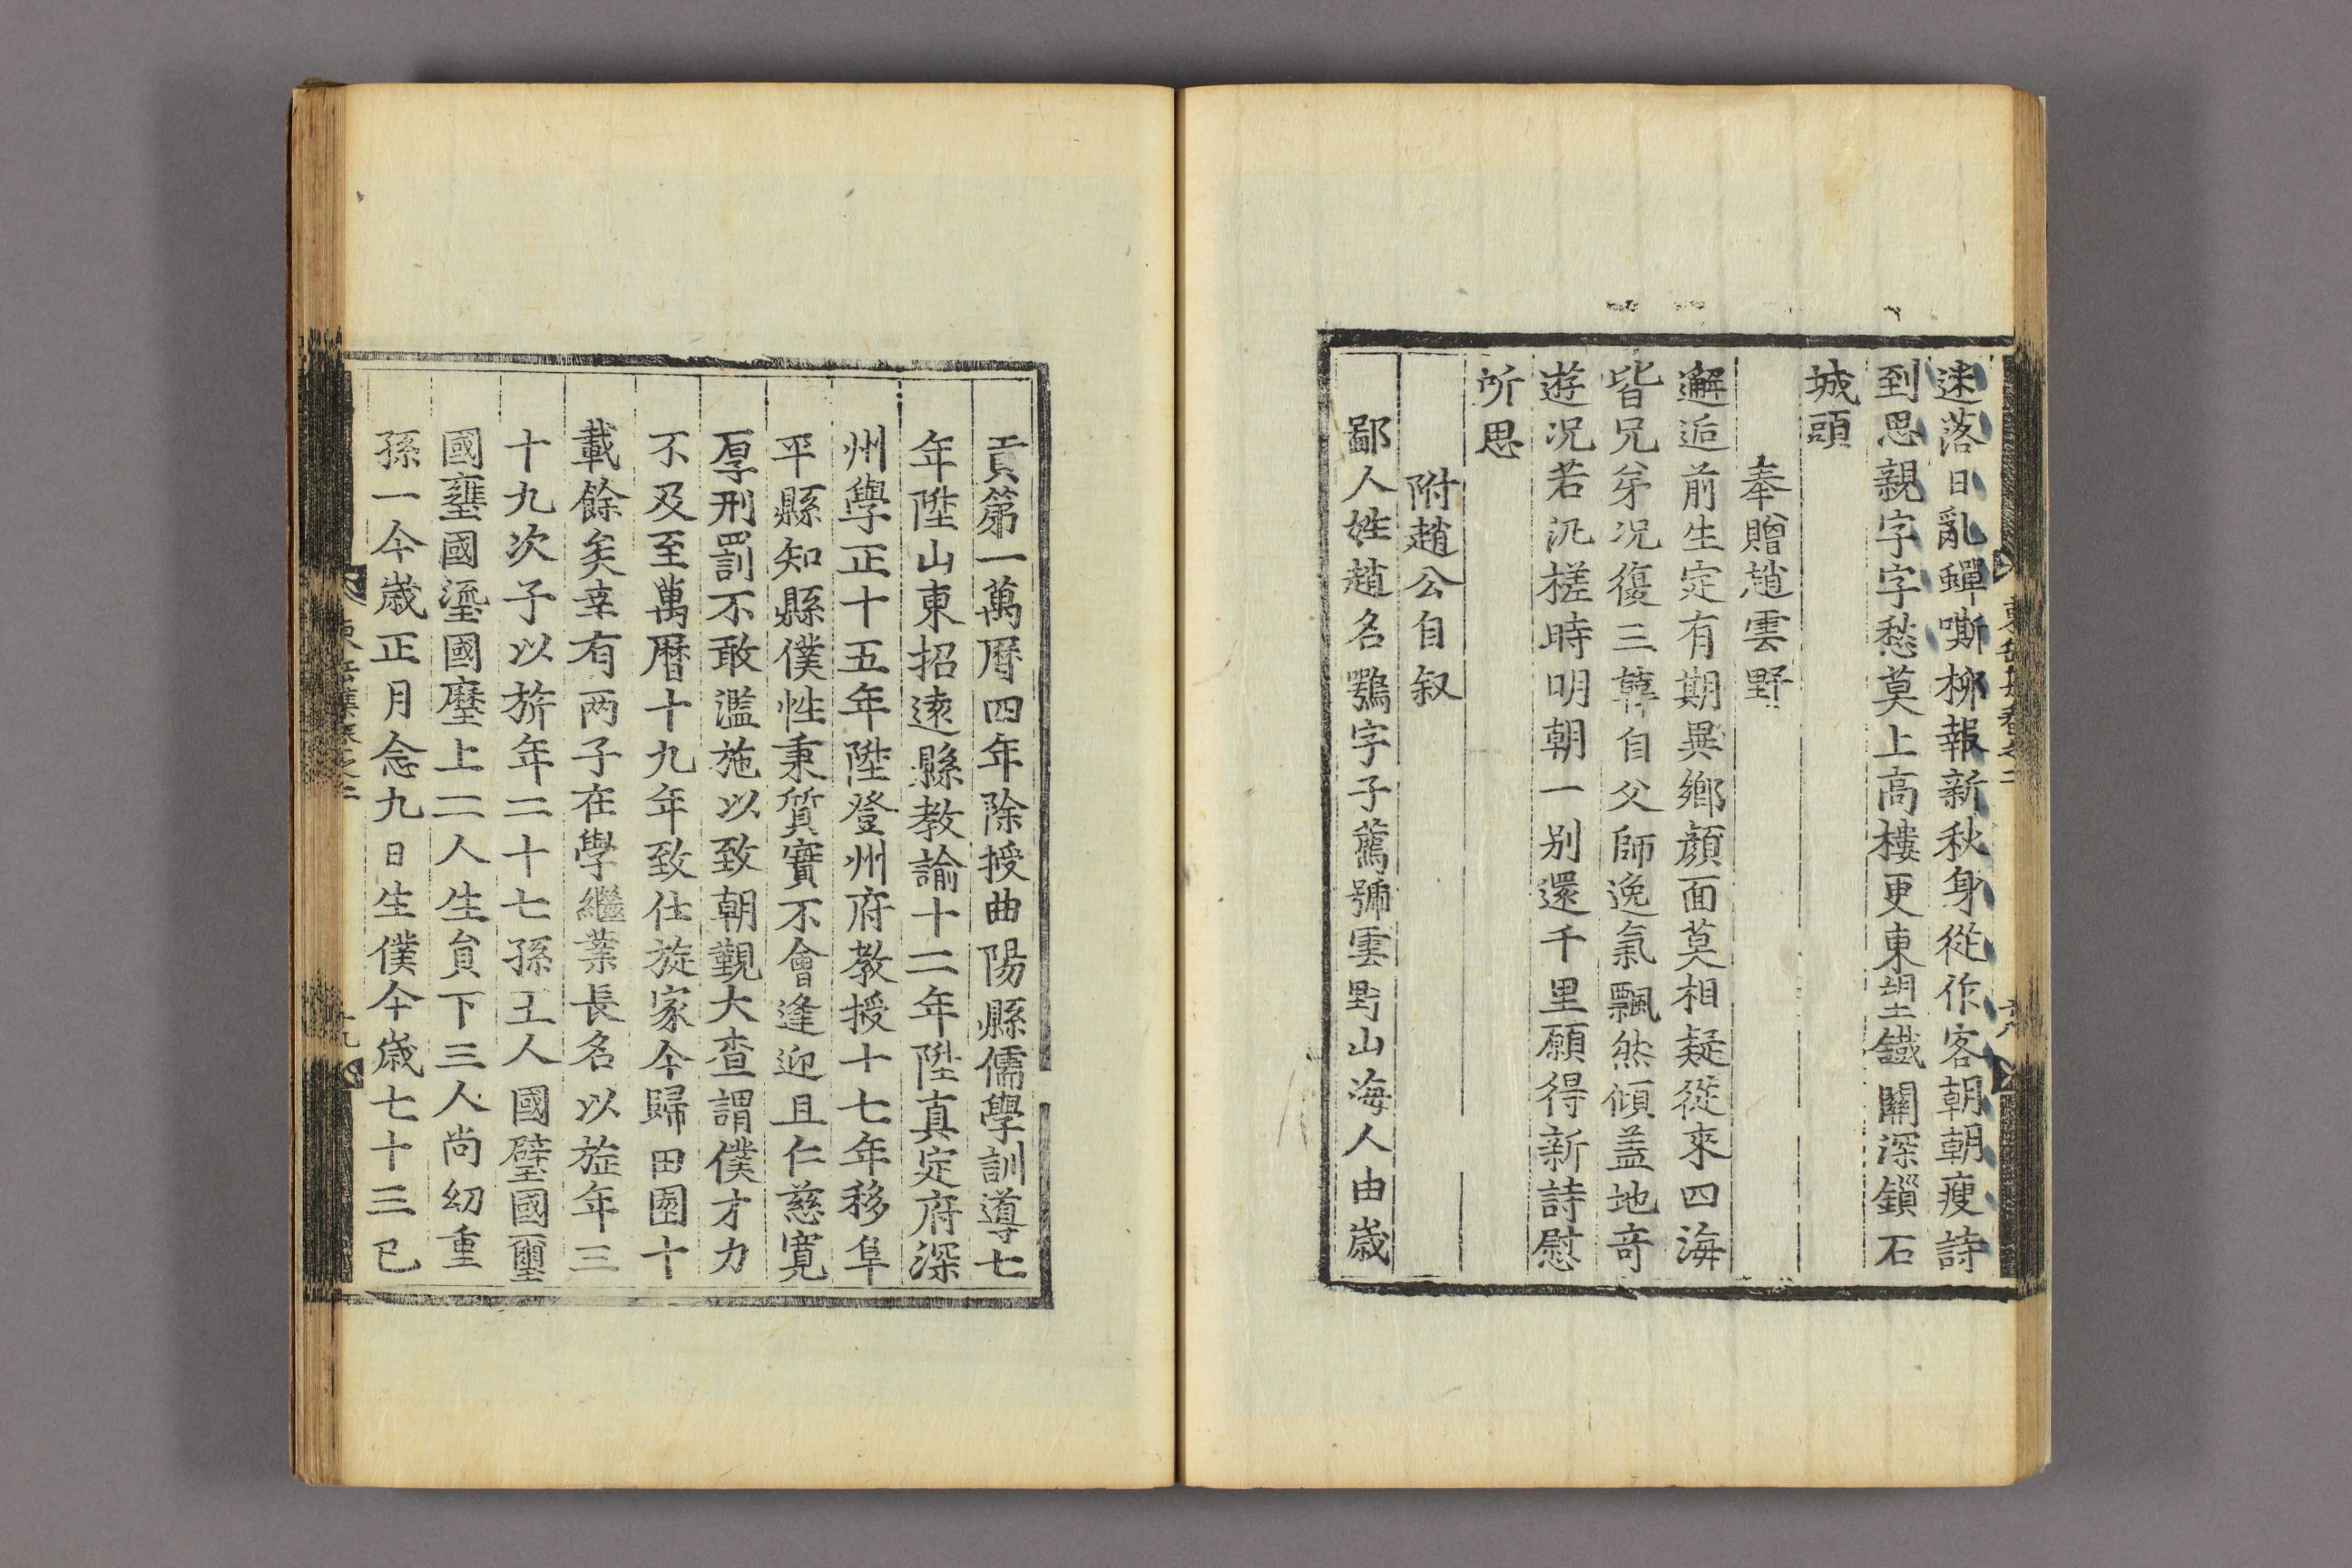 迷落日亂蟬嘶柳報新秋身從作客朝朝瘦詩
到思親字字愁莫上高樓更東望鐵關深鎖石
城頭
奉贈趙雲野
邂逅前生定有期異鄉顔面莫相疑從來四海
皆兄弟况復三韓自父師逸氣飄然傾盖地竒
遊况若泛槎時明朝一别還千里願得新詩慰
所思
附趙公自叙
鄙人姓趙名鶚字子薦號雲野山海人由歳
貢第一萬曆四年除授曲陽縣儒學訓導七
年陞山東招遠縣教諭十二年陞真定府深
州學正十五年陞登州府教授十七年移阜
平縣知縣僕性秉質實不會逢迎且仁慈寛
厚刑罰不敢濫施以致朝覲大查謂僕才力
不及至萬曆十九年致仕旋家今歸田園十
載餘矣幸有两子在學繼業長名以旋年三
十九次子以旂年二十七孫五人國璧國璽
國壅國瑬國塵上二人生員下三人尚幼重
孫一今歳正月念九日生僕今歳七十三已